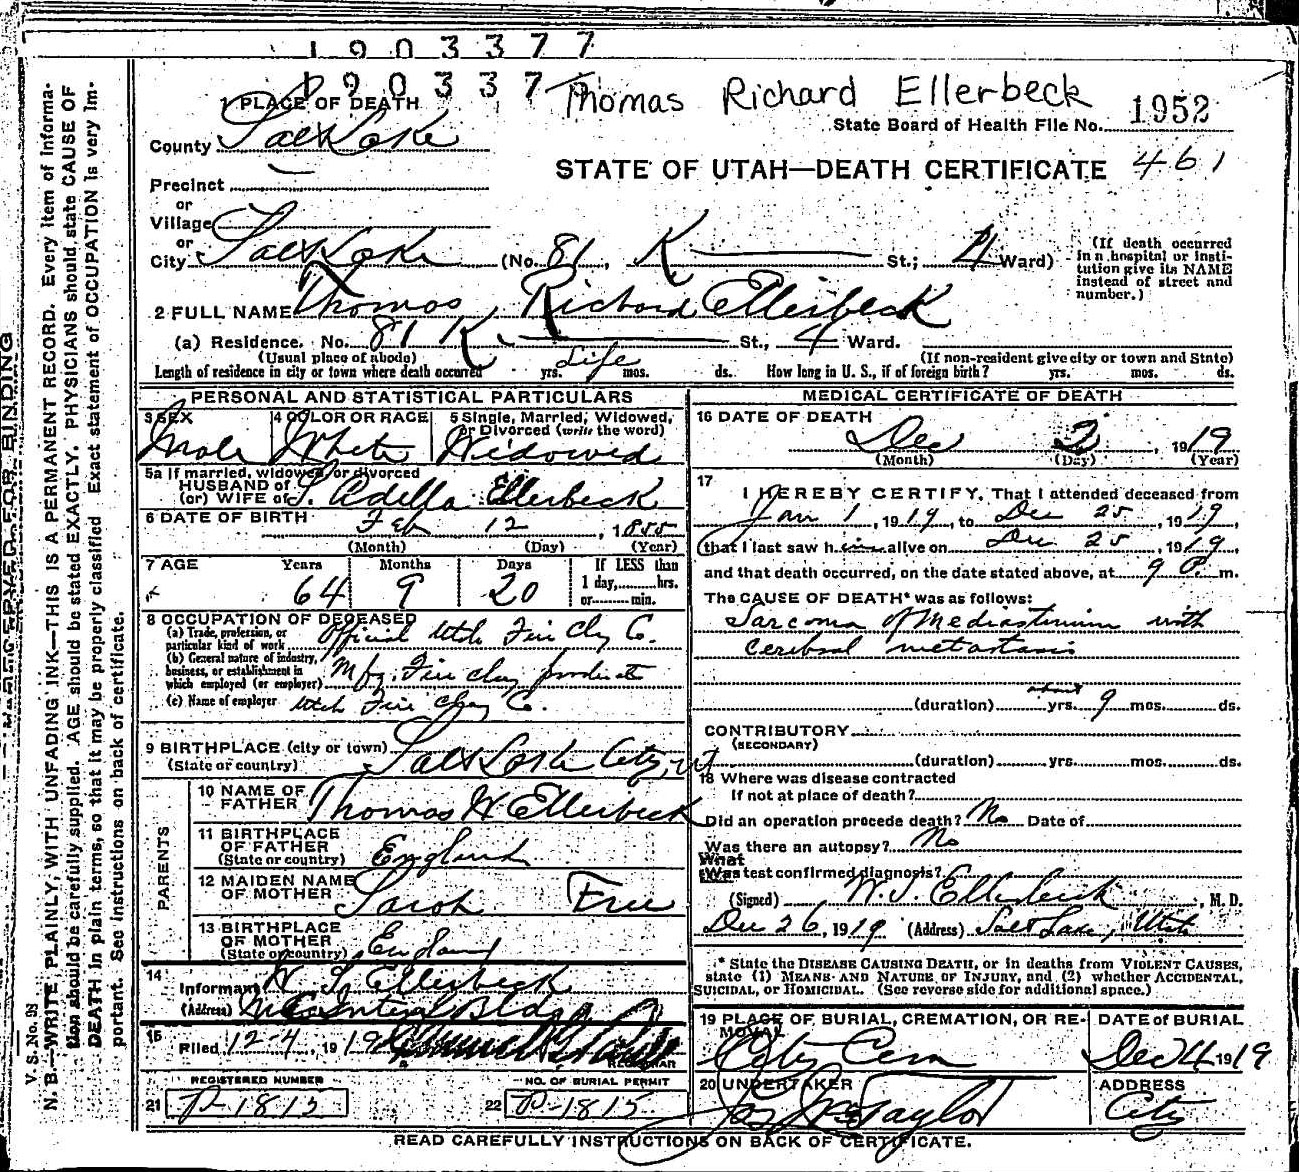 1903377
190337
Thomas Richard Ellerbeck
1952
State Board of Health File No.
461
STATE OF UTAH—DEATH CERTIFICATE
1 PLACE OF DEATH
County Salt Lake
Precinct
or
Village
or
City Salt Lake (No. 81, K St.; 4 Ward)
(If death occurred in a hospital or institution give its NAME instead of street and number.)
2 FULL NAME Thomas Richard Ellerbeck
(a) Residence. No. 81 K St., 4 Ward.
(Usual place of abode) (If non-resident give city or town and State)
Length of residence in city or town where death occurred Life yrs. mos. ds. How long in U. S., if of foreign birth? yrs. mos. ds.
PERSONAL AND STATISTICAL PARTICULARS
3 SEX Male
4 COLOR OR RACE White
5 Single, Married, Widowed, or Divorced (write the word) Widowed
5a If married, widowed, or divorced
HUSBAND of
(or) WIFE of S. Adella Ellerbeck
6 DATE OF BIRTH Feb 12, 1855
(Month) (Day) (Year)
7 AGE Years Months Days If LESS than
64 9 20 1 day, hrs.
or min.
8 OCCUPATION OF DECEASED
(a) Trade, profession, or particular kind of work Official Utah Fire Clay Co.
(b) General nature of industry, business, or establishment in which employed (or employer) Mfg. Fire clay products
(c) Name of employer Utah Fire Clay Co.
9 BIRTHPLACE (city or town) Salt Lake City, Ut
(State or country)
PARENTS
10 NAME OF FATHER Thomas W Ellerbeck
11 BIRTHPLACE OF FATHER (State or country) England
12 MAIDEN NAME OF MOTHER Sarah Free
13 BIRTHPLACE OF MOTHER (State or country) England
14 Informant W. S. Ellerbeck
(Address) McIntyre Bldg
15 Filed 12-4, 1919
REGISTRAR
REGISTERED NUMBER
21 P-1815
NO. OF BURIAL PERMIT
22 P-1815
MEDICAL CERTIFICATE OF DEATH
16 DATE OF DEATH
Dec 2, 1919
(Month) (Day) (Year)
17
I HEREBY CERTIFY, That I attended deceased from
Jan 1, 1919, to Dec 25, 1919,
that I last saw him alive on Dec 25, 1919,
and that death occurred, on the date stated above, at 9 P. m.
The CAUSE OF DEATH* was as follows:
Sarcoma of Mediastinum with
Cerebral metastasis
(duration) yrs. about 9 mos. ds.
CONTRIBUTORY
(SECONDARY)
(duration) yrs. mos. ds.
18 Where was disease contracted
If not at place of death?
Did an operation precede death? No Date of
Was there an autopsy? No
What test confirmed diagnosis?
(Signed) W. S. Ellerbeck, M. D.
Dec 26, 1919 (Address) Salt Lake, Utah
* State the DISEASE CAUSING DEATH, or in deaths from VIOLENT CAUSES, state (1) MEANS AND NATURE OF INJURY, and (2) whether ACCIDENTAL, SUICIDAL, or HOMICIDAL. (See reverse side for additional space.)
19 PLACE OF BURIAL, CREMATION, OR REMOVAL City Cem
DATE of BURIAL Dec 4 1919
20 UNDERTAKER Jos Wm Taylor
ADDRESS City
READ CAREFULLY INSTRUCTIONS ON BACK OF CERTIFICATE.
V. S. No. 98
N. B.—WRITE PLAINLY, WITH UNFADING INK—THIS IS A PERMANENT RECORD. Every item of information should be carefully supplied. AGE should be stated EXACTLY. PHYSICIANS should state CAUSE OF DEATH in plain terms, so that it may be properly classified. Exact statement of OCCUPATION is very important. See instructions on back of certificate.